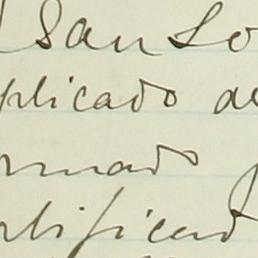 San Lo
plicado de
rmado
rtificad